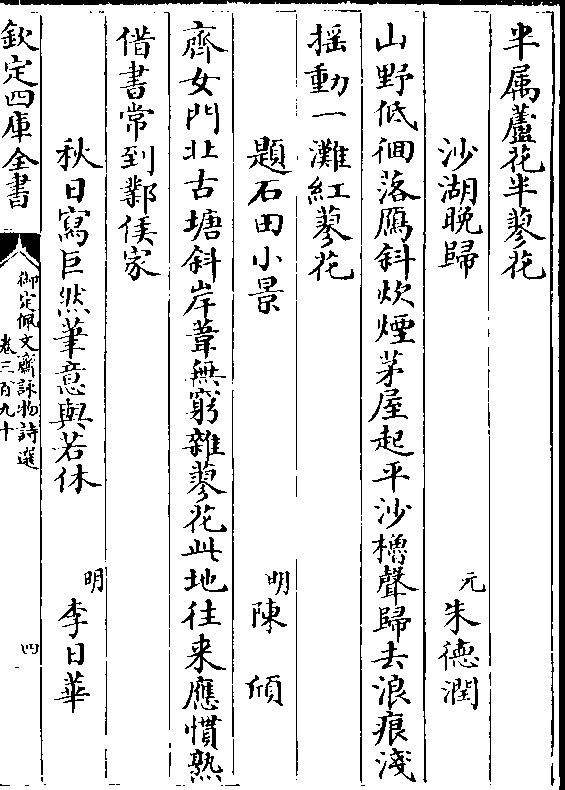 半属蘆花半蓼花
沙湖晚歸 元 朱德潤
山野低徊落鴈斜炊煙茅屋起平沙櫓聲歸去浪痕淺
揺動一灘紅蓼花
題石田小景 明 陳頎
齊女門北古塘斜岸葦無窮雜蓼花此地往来應慣熟
借書常到鄴侯家
秋日寫巨然筆意與若休 明 李日華
欽定四庫全書
御定佩文齋詠物詩選
卷三百九十 四